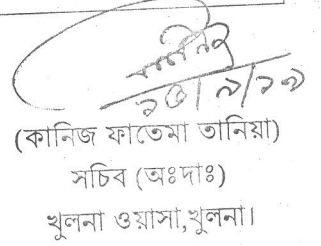 (কানিজ ফাতেমা তানিয়া)
সচিব (অঃদাঃ)
খুলনা ওয়াসা,খুলনা।